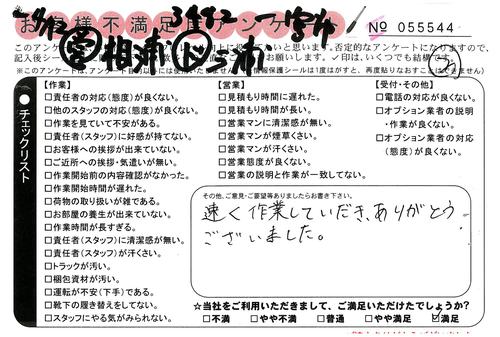 お客様不満足度アンケート
No 055544
このアンケートは
否定的なアンケートになりますので、
記入後シー
✓印は、いくつでも結構です。
チェックリスト
【作業】
□責任者の対応(態度)が良くない。
□他のスタッフの対応(態度)が良くない。
□作業を見ていて不安がある。
□責任者(スタッフ)に好感が持てない。
□お客様への挨拶が出来ていない。
□ご近所への挨拶・気遣いが無い。
□作業開始前の内容確認がなかった。
□作業開始時間が遅れた。
□荷物の取り扱いが雑である。
□お部屋の養生が出来ていない。
□作業時間が長すぎる。
□責任者(スタッフ)に清潔感が無い。
□責任者(スタッフ)が汗くさい。
□トラックが汚い。
□梱包資材が汚い。
□運転が不安(下手)である。
□靴下の履き替えをしてない。
□スタッフにやる気がみられない。
【営業】
□見積もり時間に遅れた。
□見積もり時間が長い。
□営業マンに清潔感が無い。
□営業マンが煙草くさい。
□営業マンが汗くさい。
□営業態度が良くない。
□営業の説明と作業が一致してない。
【受付・その他】
□電話の対応が良くない。
□オプション業者の説明
・作業が良くない。
□オプション業者の対応
(態度)が良くない。
その他、ご意見・ご要望等ありましたらお書き下さい。
速く作業していだき、ありがとう
ございました。
☆当社をご利用いただきまして、ご満足いただけたでしょうか?
□不満 □やや不満 □普通 □やや満足 ☑満足